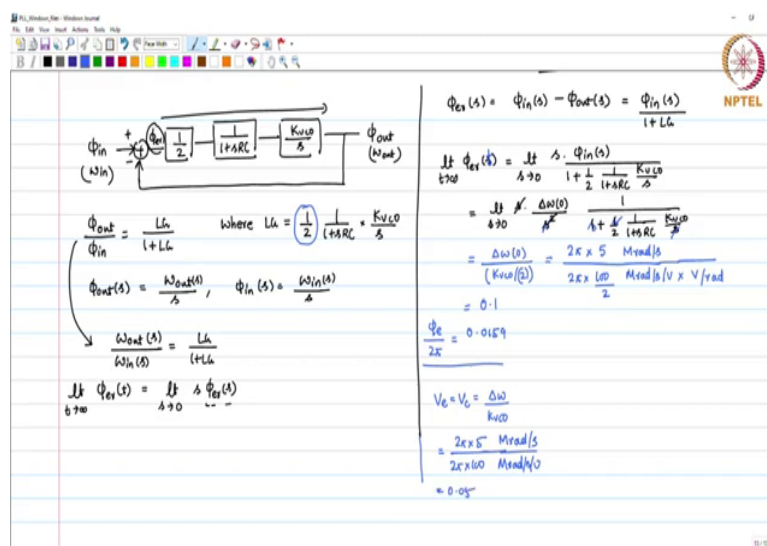 PLL_Windows_Note - Windows Journal
File Edit View Insert Actions Tools Help
Page Width
NPTEL
ϕin
(ωin)
+
-
ϕer
1/2
1/(1+sRC)
KVCO/s
ϕout
(ωout)
ϕout/ϕin = LG/(1+LG) where LG = 1/2 1/(1+sRC) × KVCO/s
ϕout(s) = ωout(s)/s, ϕin(s) = ωin(s)/s
ωout(s)/ωin(s) = LG/(1+LG)
lt t→∞ ϕer(t) = lt s→0 s ϕer(s)
ϕer(s) = ϕin(s) - ϕout(s) = ϕin(s)/(1+LG)
lt t→∞ ϕer(t) = lt s→0 s. ϕin(s)/(1+ 1/2 1/(1+sRC) KVCO/s)
= lt s→0 s. Δω(0)/s² 1/(s+ s/2 1/(1+sRC) KVCO/s)
= Δω(0)/(KVCO/(2)) = 2π × 5 Mrad/s/(2π × 100/2 Mrad/s/V × V/rad)
= 0.1
ϕe/2π = 0.0159
Ve = Vc = Δω/KVCO
= 2π×5 Mrad/s/(2π×100 Mrad/s/V)
= 0.05